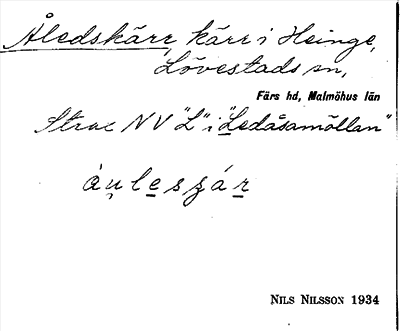 Åledskärr, kärr i Heinge,
Lövestads sn,
Färs hd, Malmöhus län
Strax NV "L" i "Ledåsamöllan"
àu̯le̱sʒáṟ
NILS NILSSON 1934